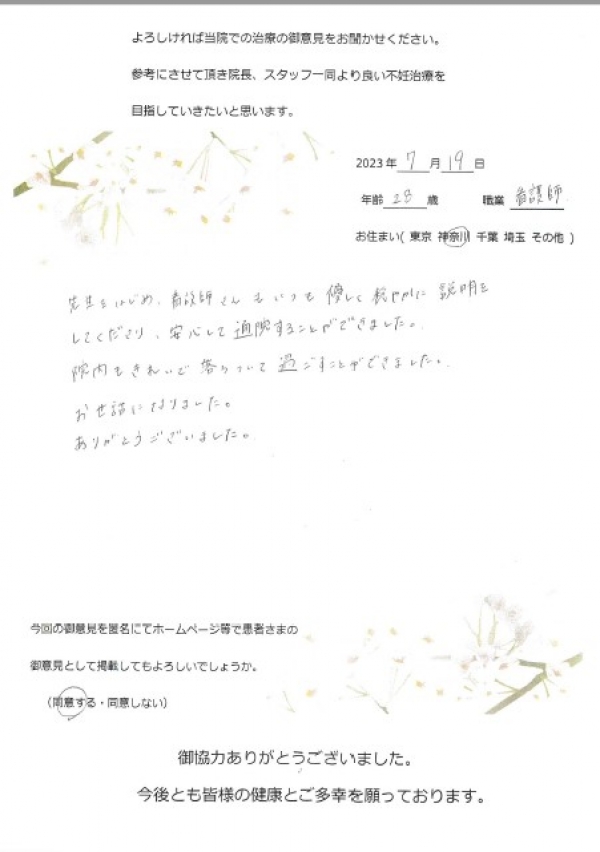 よろしければ当院での治療の御意見をお聞かせください。
参考にさせて頂き院長、スタッフ一同より良い不妊治療を
目指していきたいと思います。
2023年 7 月 19 日
年齢 28 歳 職業 看護師
お住まい( 東京 神奈川 千葉 埼玉 その他 )
先生をはじめ、看護師さんもいつも優しく穏やかに説明を
してくださり、安心して通院することができました。
院内もきれいで落ちついて過ごすことができました。
お世話になりました。
ありがとうございました。
今回の御意見を匿名にてホームページ等で患者さまの
御意見として掲載してもよろしいでしょうか。
(同意する・同意しない)
御協力ありがとうございました。
今後とも皆様の健康とご多幸を願っております。